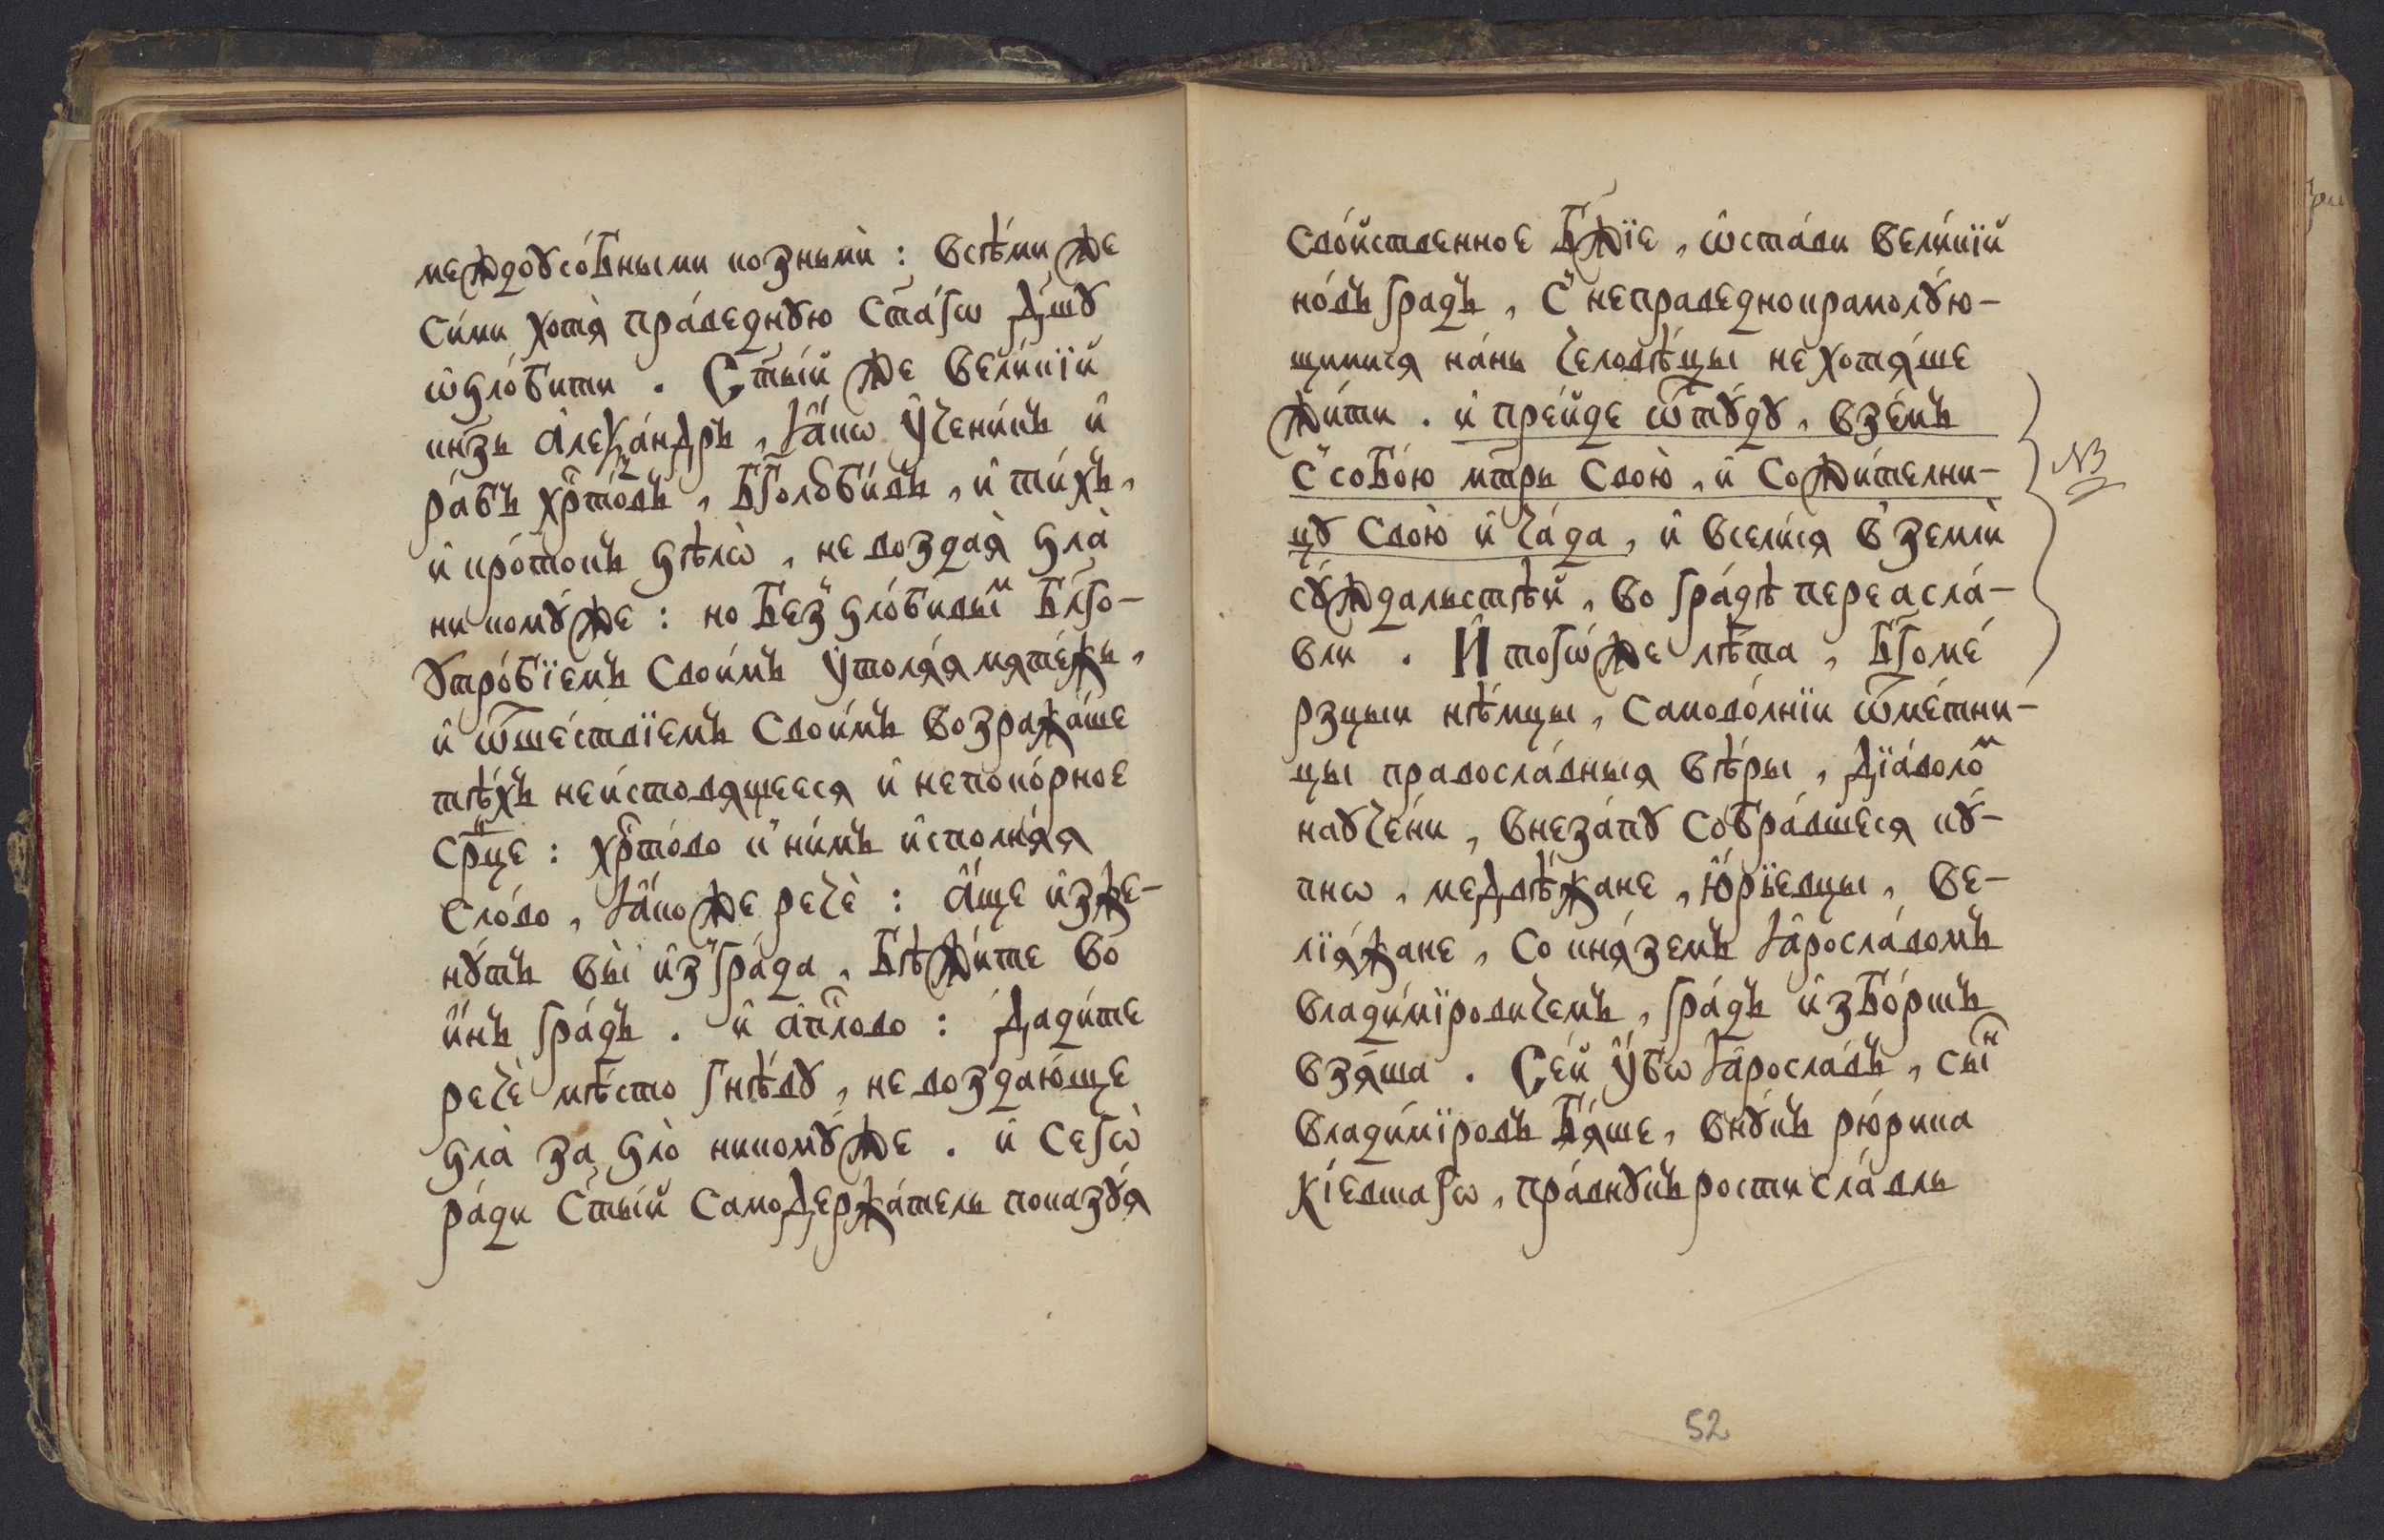 междоусо́бными козньмѝ : всѣ́ми же
си́ми хотѧ̀ пра́веднꙋю ст҃а́гѡ дш҃ꙋ
ѡ҆ѕло́бити . Ст҃ы́й же вели́кїй
кнѧ҃зь а҆леѯа́ндръ , ꙗ҆́кѡ ᲂу҆чени́къ и҆
ра́бъ хрⷭ҇то́въ , бг҃олюби́въ , и҆ ти́хъ ,
и҆ кро́токъ ѕѣлѡ̀ , не воздаѧ̀ ѕла̀
никомꙋ́же : но без̾ѕло́бивыⷨ бл҃го-
ꙋтро́бїемъ свои́мъ ᲂу҆толѧ́ѧ мѧте́жъ ,
и҆ ѿше́ствїемъ свои́мъ возража́ше
тѣ́хъ неи́стовѧщеесѧ и҆ непоко́рное
срⷣце : хрⷭ҇то́во к̾ни́мъ и҆сполнѧ́ѧ
сло́во , ꙗ҆́коже речѐ : а҆́ще и҆зже-
нꙋ́тъ вы̀ и҆з̾гра́да , бѣжи́те во
и҆́нъ гра́дъ . и҆ а҆пⷭ҇лово : Дади́те
речѐ мѣ́сто гнѣ́вꙋ , не воздаю́ще
ѕла̀ за ѕло̀ никомꙋ́же . и҆ сегѡ̀
ра́ди ст҃ы́й самодержа́тель показꙋ́ѧ
сво́йственное бж҃їе , ѡ҆ста́ви вели́кїй
но́въ градъ , с̾ неправеднокрамолꙋ́ю-
щимисѧ на́нь человѣ́цы не хотѧ́ше
жи́ти . и҆ пре́йде ѿтꙋ́дꙋ , взе́мъ
с̾собо́ю мт҃рь свою̀ , и҆ сожи́телни-
цꙋ свою̀ и҆ ча́да , и҆ всели́сѧ в̾ землѝ
сꙋ́ждальстѣй , во гра́дѣ переасла́-
вли . И҆ тогѡ́же лѣ́та , бг҃оме́
рзцыи нѣ́мцы , самово́лнїи ѿме́тни-
цы правосла́вныѧ вѣ́ры , дїа́волоⷨ
наꙋче́ни , внеза́пꙋ собра́вшесѧ кꙋ́-
пнѡ , медвѣ́жане , ю҆́рїевцы , ве-
лїѧ́жане , со кнѧ́земъ ꙗ҆росла́вомъ
влади́мїровичемъ , гра́дъ и҆збо́рътъ
взѧ́ша . Се́й ᲂу҆́бѡ ꙗ҆росла́въ , сыⷩ҇
влади́мїровъ бѧ́ше , внꙋ́къ рю́рика
кі́евшагѡ , пра́внꙋкъ ростисла́вль
NB
52